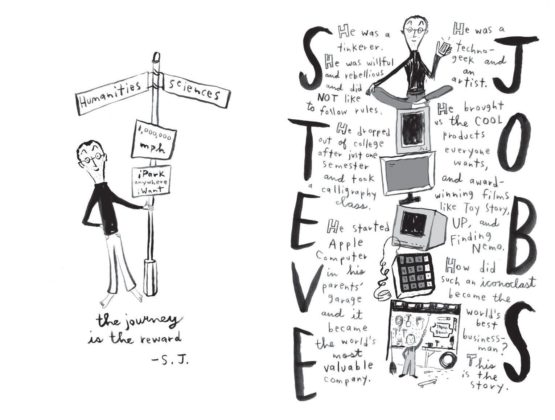 Humanities
Sciences
1,000,000
mph
iPark
anywhere
iWant
the journey
is the reward
-S.J.
STEVE
JOBS
He was a
tinkerer.
He was willful
and rebellious
and did
NOT like
to follow rules.
He dropped
out of college
after just one
semester
and took
a calligraphy
class.
He started
Apple
Computer
in his
parents'
garage
and it
became
the world's
most
valuable
company.
He was a
techno-
geek and
an
artist.
He brought
us the COOL
products
everyone
wants,
and award-
winning films
like Toy Story,
UP, and
Finding
Nemo.
How did
such an iconoclast
become the
world's
best
business-
man?
This
is the
story.